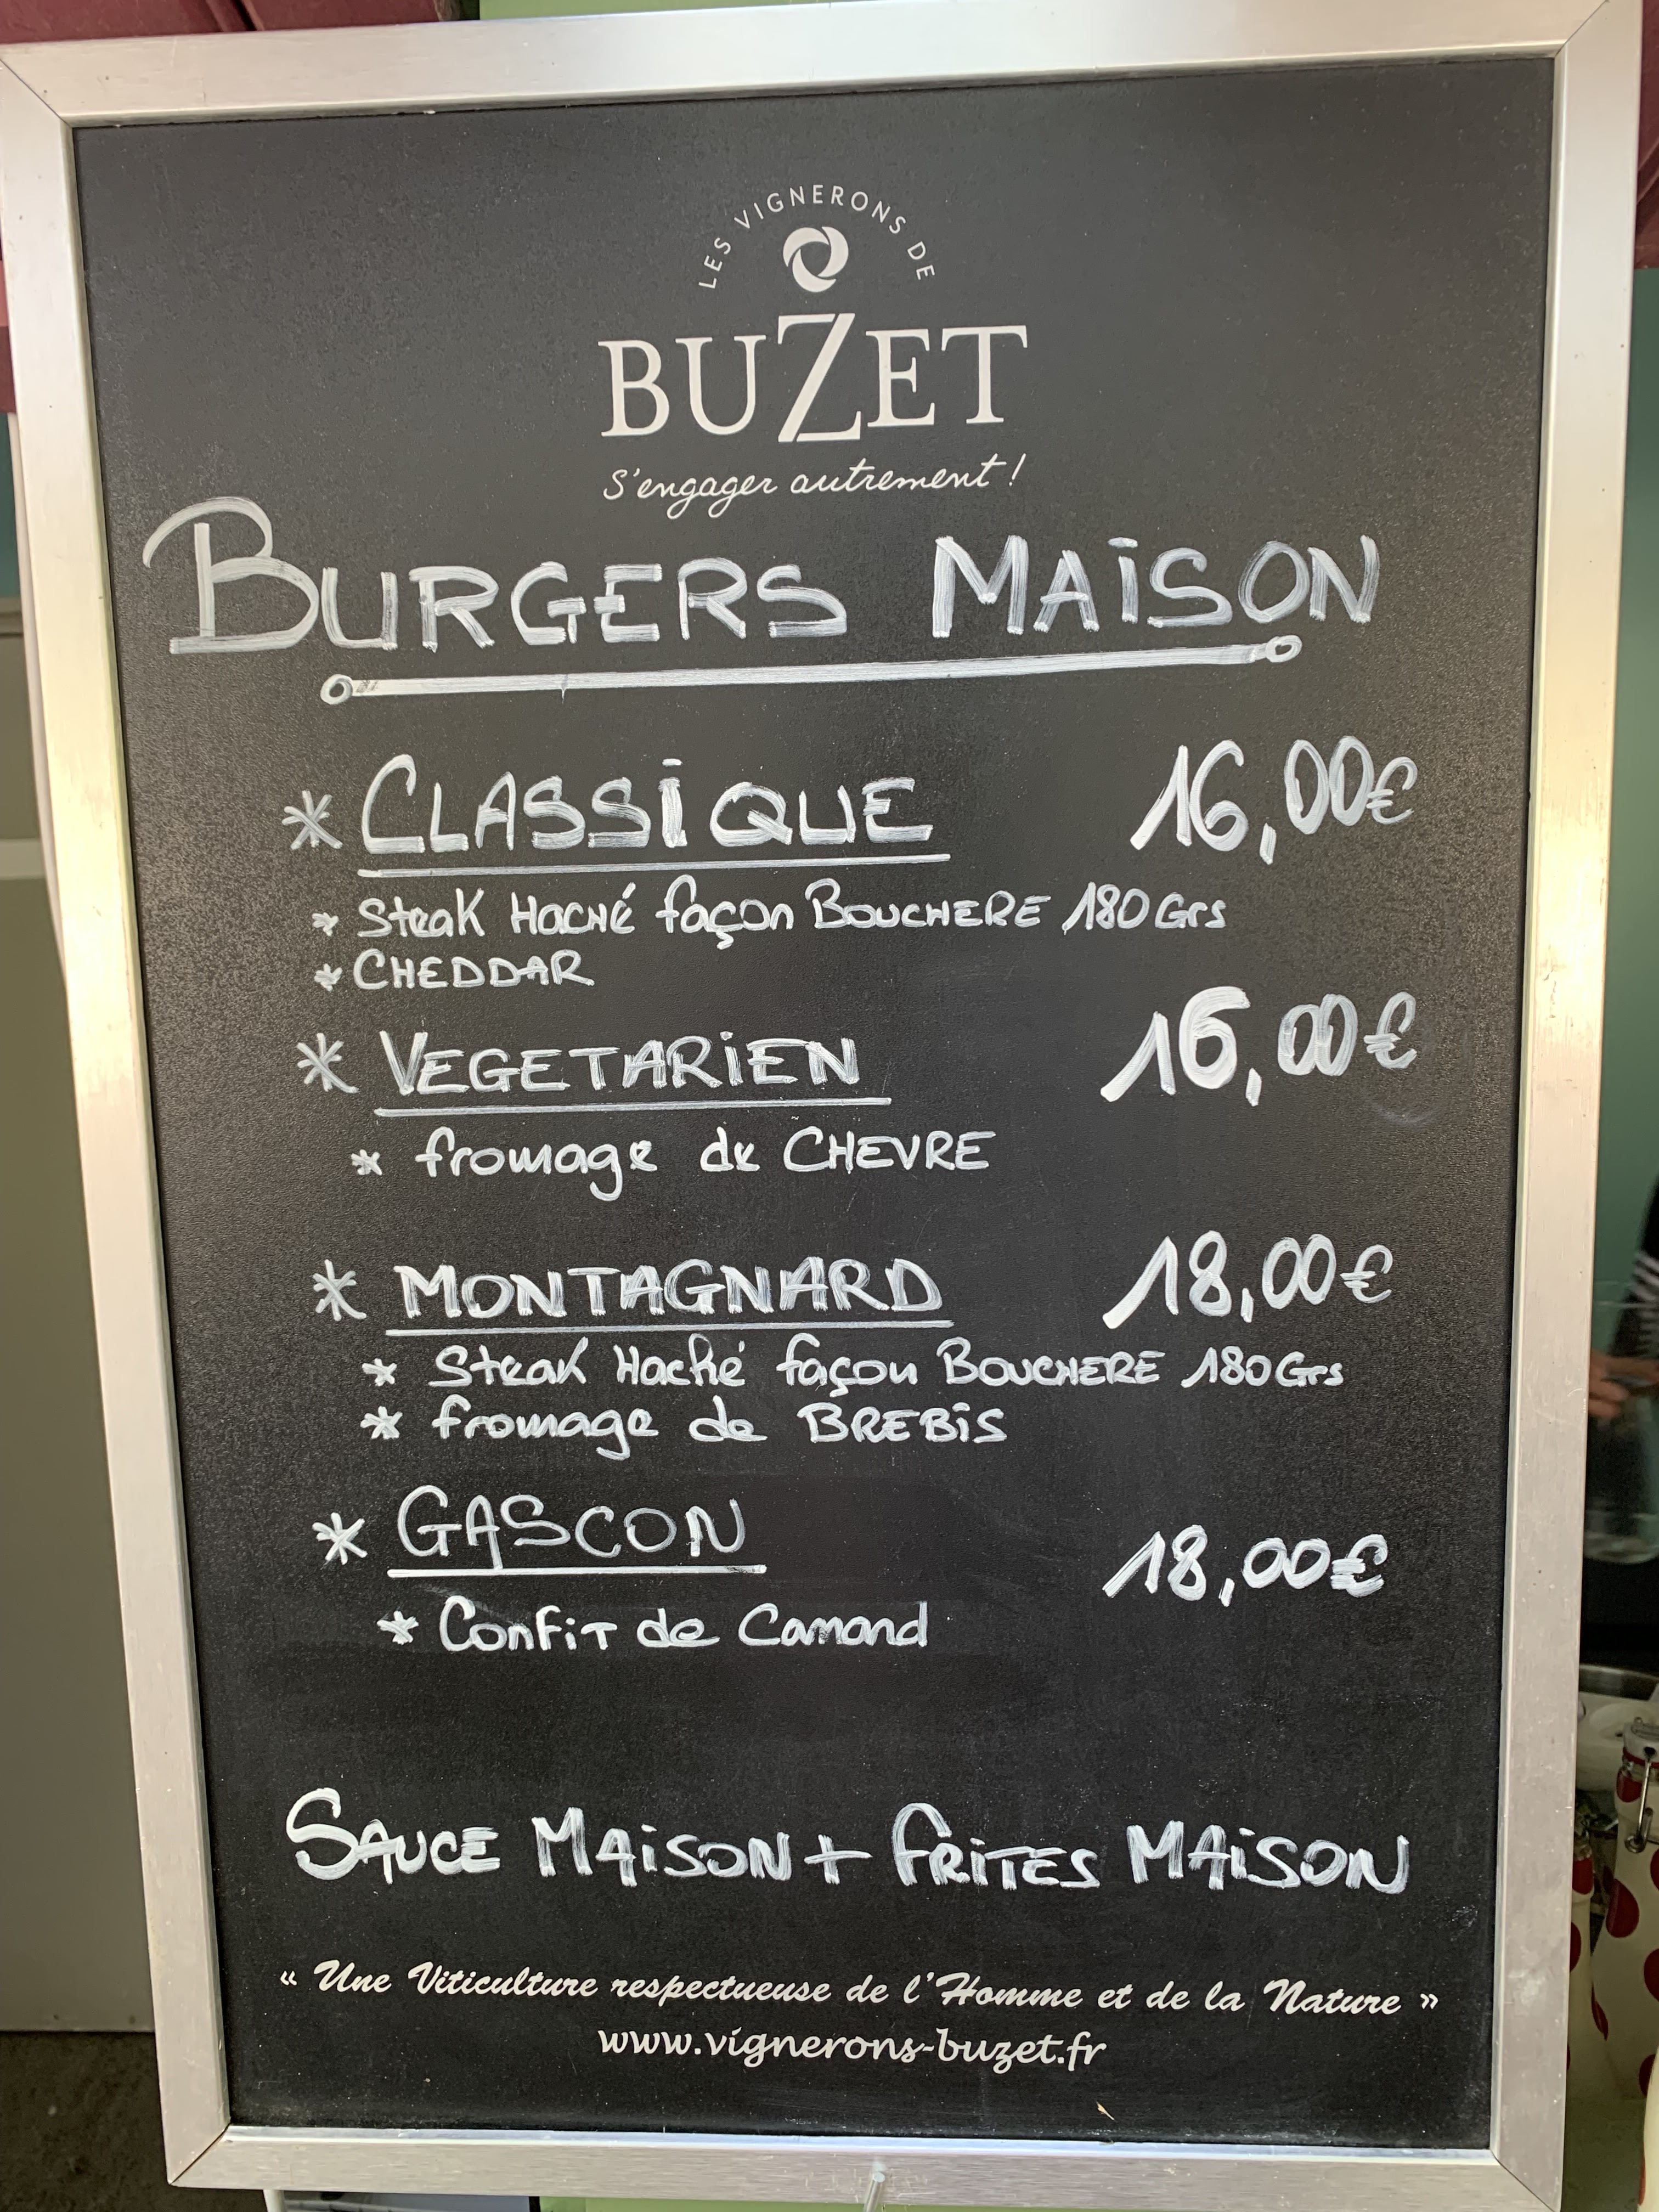 LES VIGNERONS DE
BUZET
S'engager autrement !
BURGERS MAiSON
* CLASSiQUE 16,00€
* Steak Haché façon BOUCHERE 180 Grs
* CHEDDAR
* VEGETARiEN 16,00€
* fromage de CHEVRE
* MONTAGNARD 18,00€
* Steak Haché façon BOUCHERE 180 Grs
* fromage de BREBiS
* GASCON 18,00€
* Confit de Canard
SAUCE MAiSON + FRiTES MAiSON
« Une Viticulture respectueuse de l'Homme et de la Nature »
www.vignerons-buzet.fr